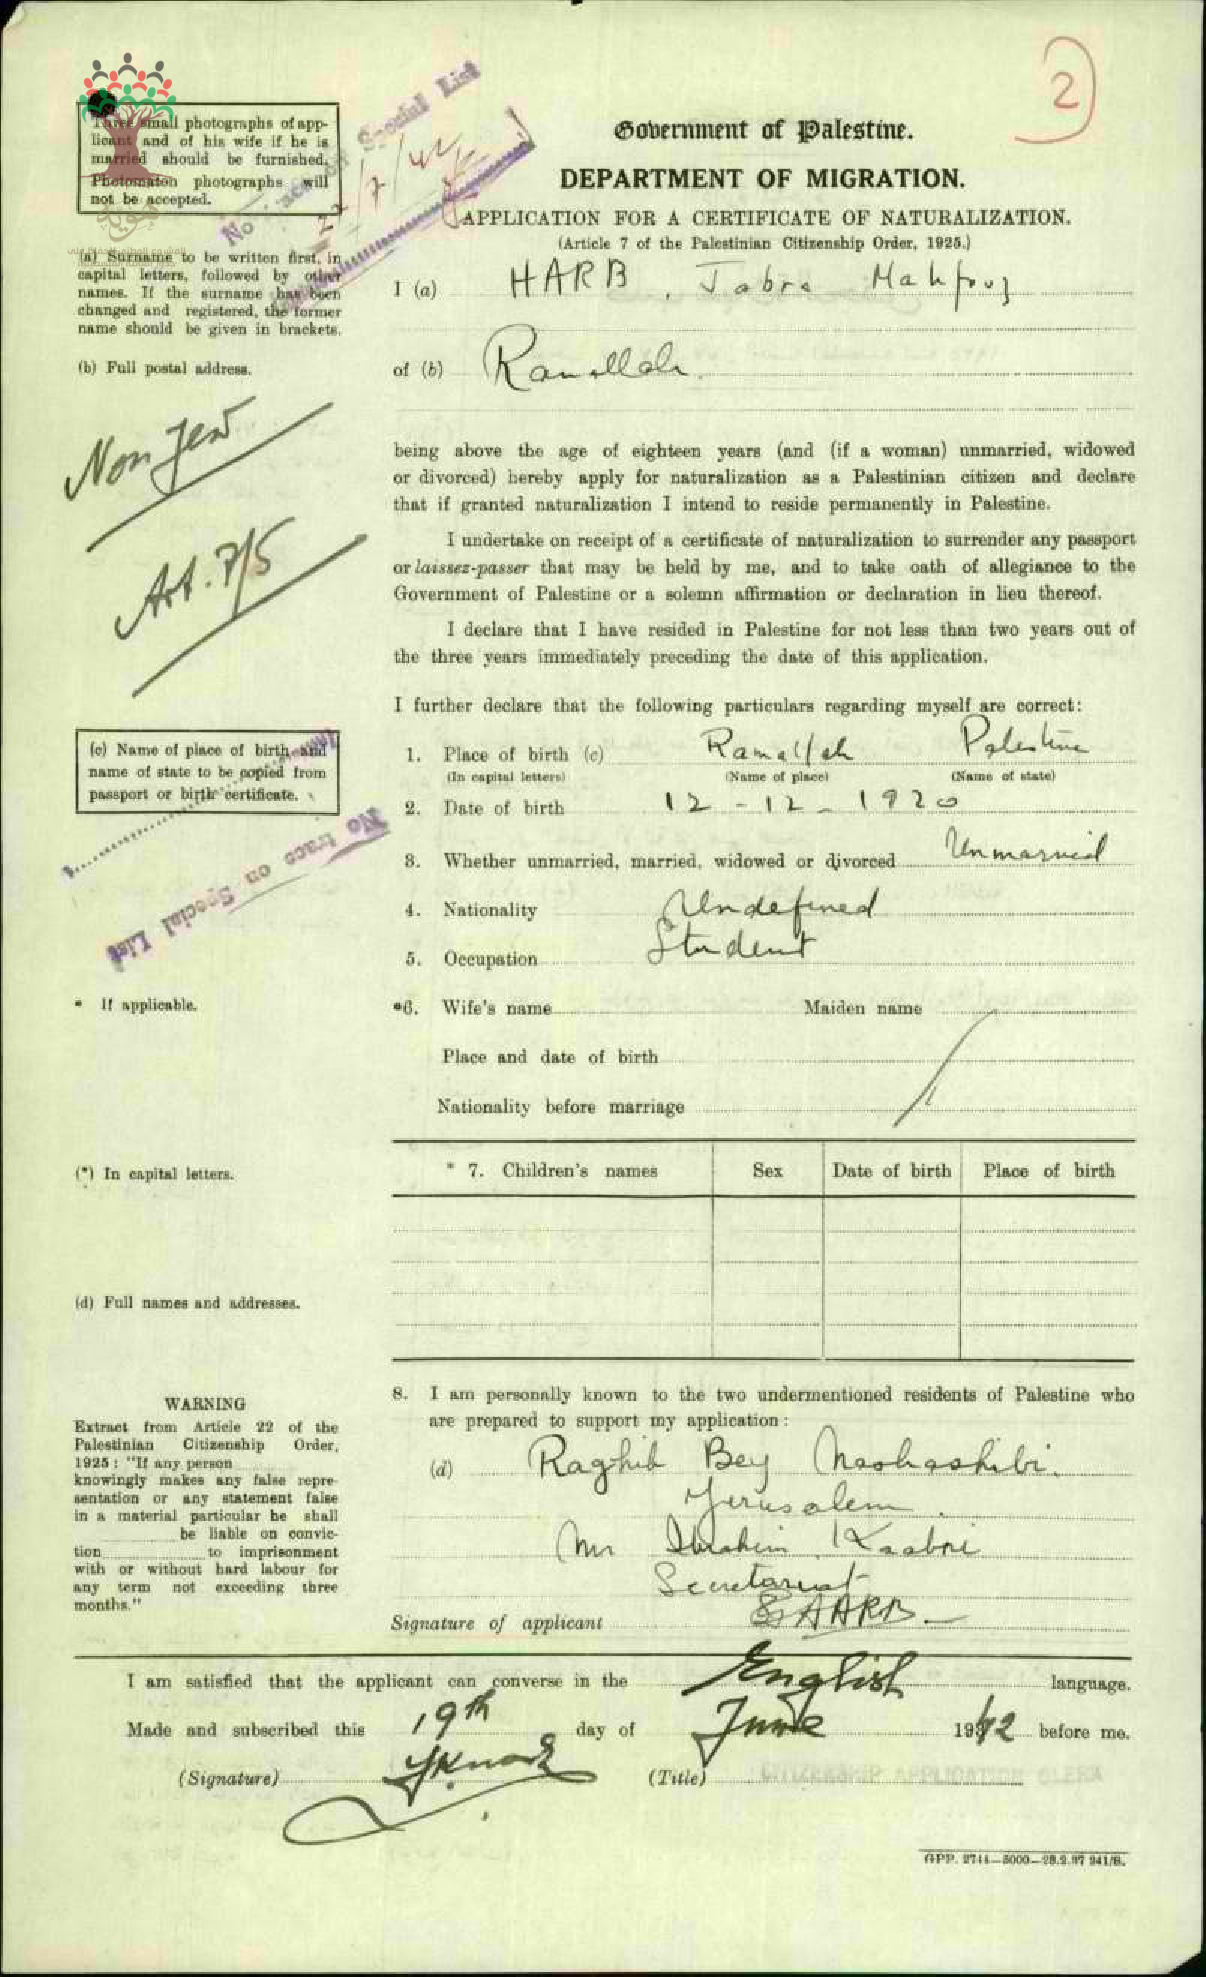 2
Three small photographs of app-
licant and of his wife if he is
married should be furnished.
Photomaton photographs will
not be accepted.
No trace on Special List
22/7/42
Government of Palestine.
DEPARTMENT OF MIGRATION.
APPLICATION FOR A CERTIFICATE OF NATURALIZATION.
(Article 7 of the Palestinian Citizenship Order, 1925.)
(a) Surname to be written first, in
capital letters, followed by other
names. If the surname has been
changed and registered, the former
name should be given in brackets.
I (a) HARB, Jabra Mahfouz
(b) Full postal address.
of (b) Ramallah.
Non Jew
Art. 7/5
being above the age of eighteen years (and (if a woman) unmarried, widowed
or divorced) hereby apply for naturalization as a Palestinian citizen and declare
that if granted naturalization I intend to reside permanently in Palestine.
I undertake on receipt of a certificate of naturalization to surrender any passport
or laissez-passer that may be held by me, and to take oath of allegiance to the
Government of Palestine or a solemn affirmation or declaration in lieu thereof.
I declare that I have resided in Palestine for not less than two years out of
the three years immediately preceding the date of this application.
I further declare that the following particulars regarding myself are correct:
(c) Name of place of birth and
name of state to be copied from
passport or birth certificate.
No trace on Special List
1. Place of birth (c) Ramallah Palestine
(In capital letters) (Name of place) (Name of state)
2. Date of birth 12 - 12 - 1920
3. Whether unmarried, married, widowed or divorced Unmarried
4. Nationality Undefined
5. Occupation Student
* If applicable.
*6. Wife's name Maiden name
Place and date of birth
Nationality before marriage
(*) In capital letters.
* 7. Children's names Sex Date of birth Place of birth
(d) Full names and addresses.
8. I am personally known to the two undermentioned residents of Palestine who
are prepared to support my application:
(d) Raghib Bey Nashashibi.
Jerusalem
Mr Ibrahim Kaabni
Secretariat
WARNING
Extract from Article 22 of the
Palestinian Citizenship Order,
1925: "If any person
knowingly makes any false repre-
sentation or any statement false
in a material particular he shall
be liable on convic-
tion to imprisonment
with or without hard labour for
any term not exceeding three
months."
Signature of applicant HARB
I am satisfied that the applicant can converse in the English language.
Made and subscribed this 19th day of June 1942 before me.
(Signature) (Title) CITIZENSHIP APPLICATION CLERK
GPP. 2744—5000—23.2.37 241/S.